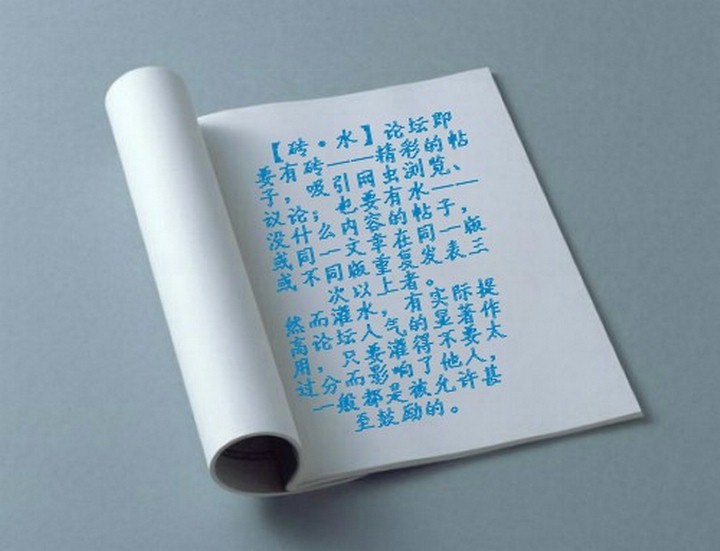 【砖·水】论坛即
要有砖——精彩的帖
子，吸引网虫浏览、
议论；也要有水——
没什么内容的帖子，
或同一文章在同一版
或不同版重复发表三
次以上者。
然而灌水，有实际提
高论坛人气的显著作
用，只要灌得不要太
过分而影响了他人，
一般都是被允许甚
至鼓励的。